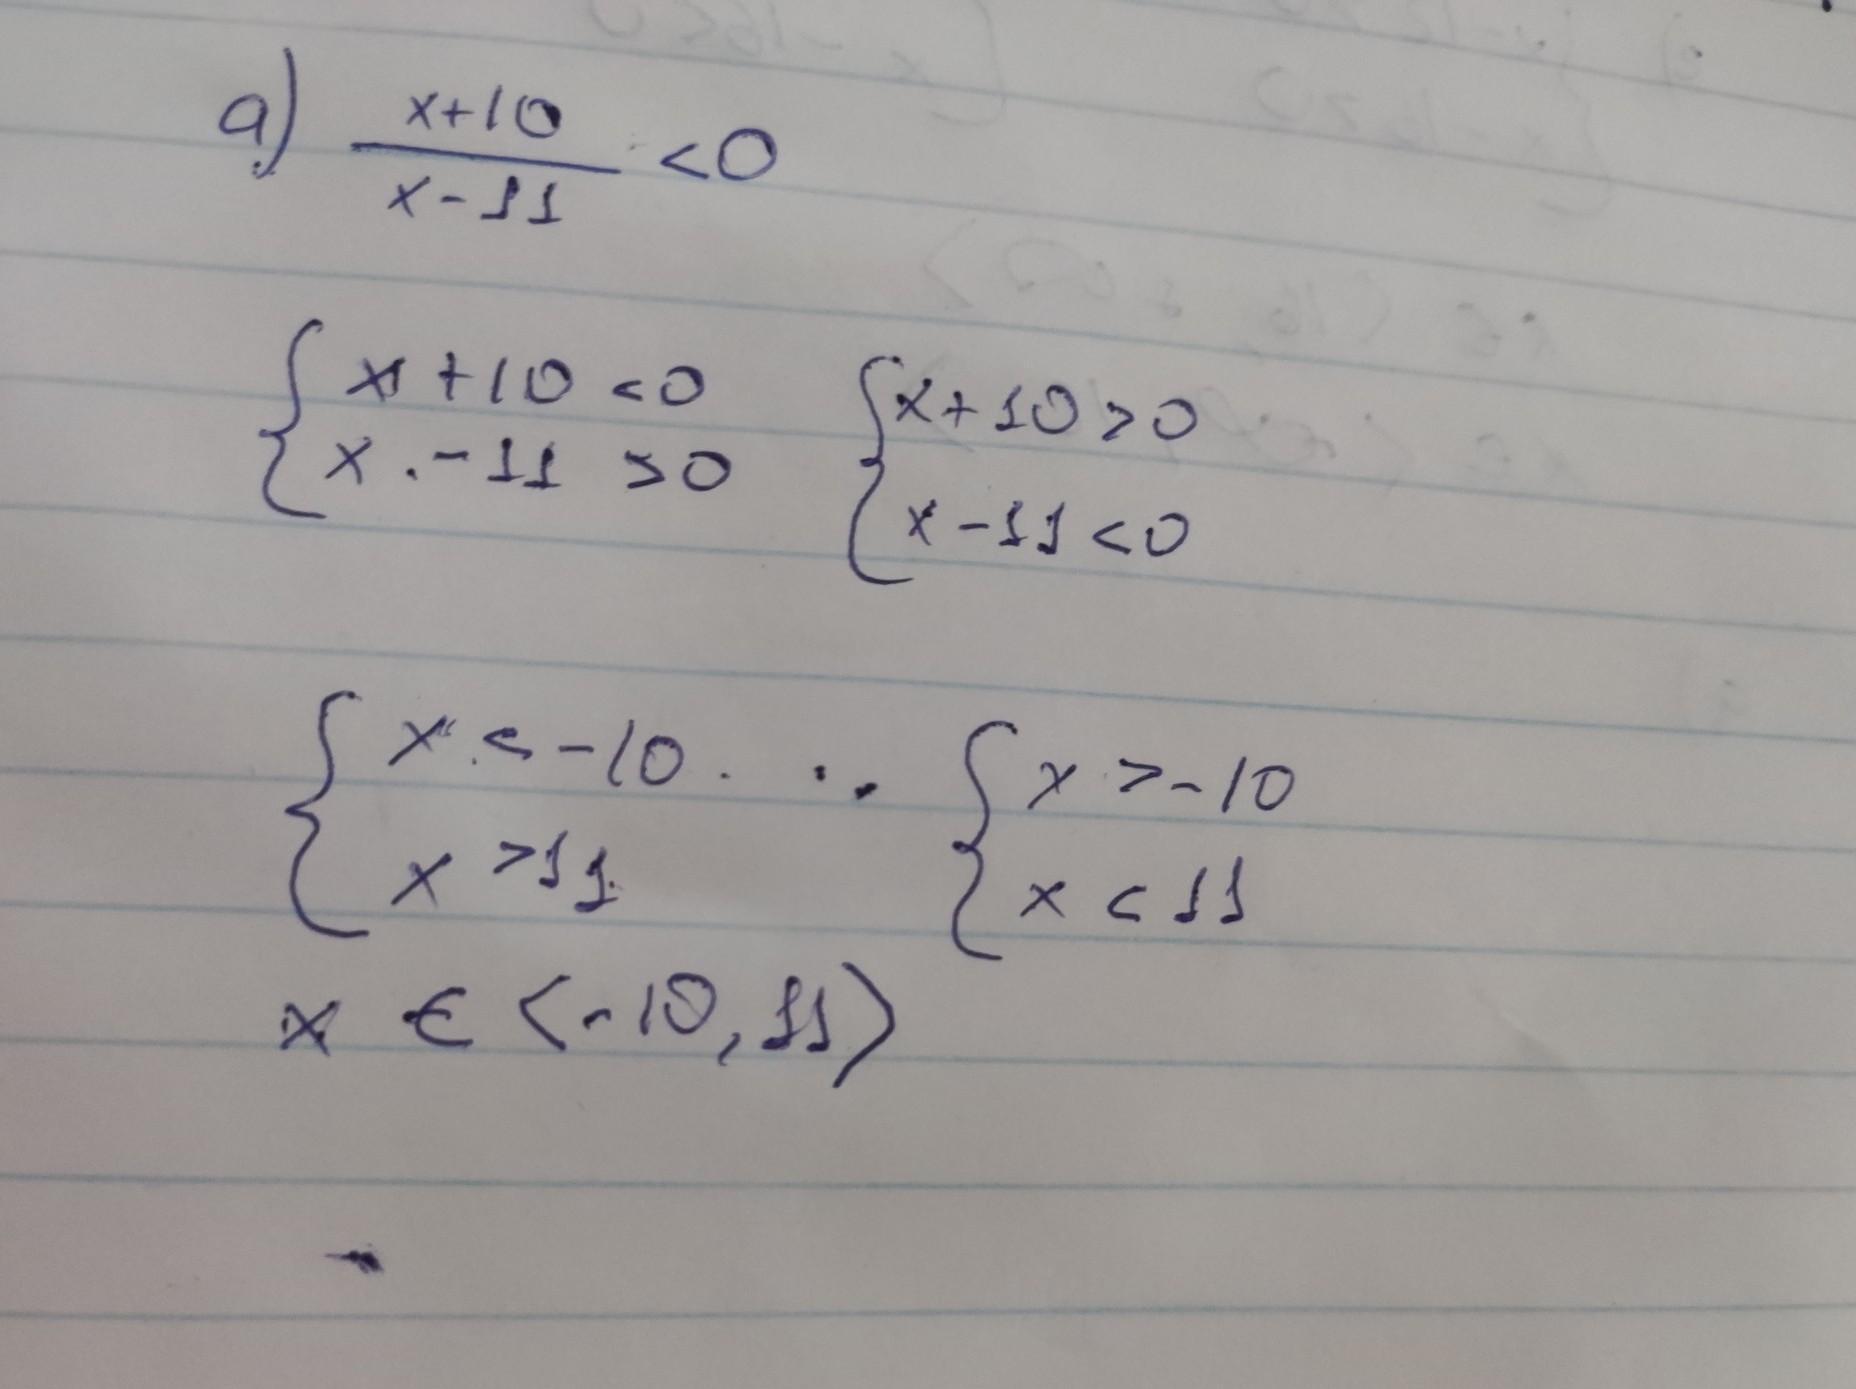 a) x+10 / x-11 <0
{ x+10 <0 { x+10>0
x.-11 >0 x-11<0
{ x<-10 { x>-10
x >11 x<11
x ∈ <-10, 11>